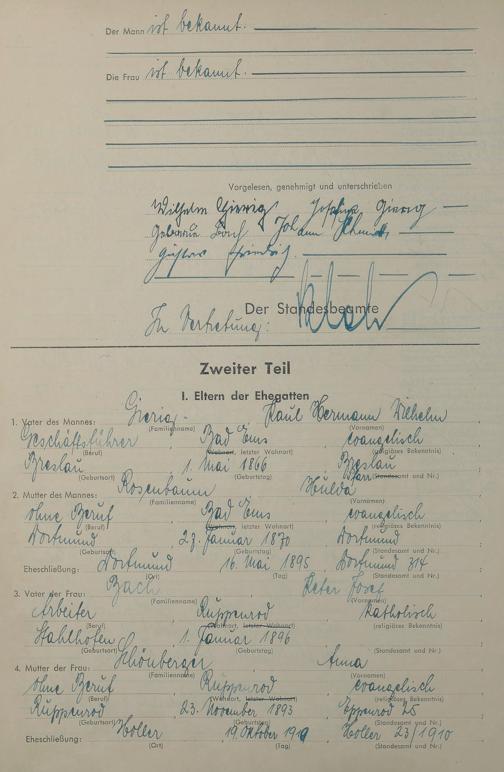 Der Mann ist bekannt.
Die Frau ist bekannt.
Vorgelesen, genehmigt und unterschrieben
Wilhelm Gierig, Josefine Gierig
geborene Bach, Johann Schmidt,
Friedrich.
Der Standesbeamte
In Vertretung:
Zweiter Teil
I. Eltern der Ehegatten
1. Vater des Mannes: Gierig Paul Hermann Wilhelm
(Familienname) (Vornamen)
Geschäftsführer, Bad Ems, evangelisch
(Beruf) (Wohnort, letzter Wohnort) (religiöses Bekenntnis)
Breslau, 1. Mai 1866, Breslau
(Geburtsort) (Geburtstag) (Standesamt und Nr.)
2. Mutter des Mannes: Rosenbaum Hulda
(Familienname) (Vornamen)
ohne Beruf, Bad Ems, evangelisch
(Beruf) (Wohnort, letzter Wohnort) (religiöses Bekenntnis)
Dortmund, Januar 1870, Dortmund
(Geburtsort) (Geburtstag) (Standesamt und Nr.)
Eheschließung: Dortmund, 16. Mai 1895, Dortmund 314
(Ort) (Tag) (Standesamt und Nr.)
3. Vater der Frau: Bach Peter Josef
(Familienname) (Vornamen)
Arbeiter, Ruppenrod, katholisch
(Beruf) (Wohnort, letzter Wohnort) (religiöses Bekenntnis)
Stahlhofen, 1. Januar 1896
(Geburtsort) (Geburtstag) (Standesamt und Nr.)
4. Mutter der Frau: Schönberger Anna
(Familienname) (Vornamen)
ohne Beruf, Ruppenrod, evangelisch
(Beruf) (Wohnort, letzter Wohnort) (religiöses Bekenntnis)
Ruppenrod, 23. November 1893, Eppenrod 25
(Geburtsort) (Geburtstag) (Standesamt und Nr.)
Eheschließung: Holler, 19. Oktober 1910, Holler 23/1910
(Ort) (Tag) (Standesamt und Nr.)